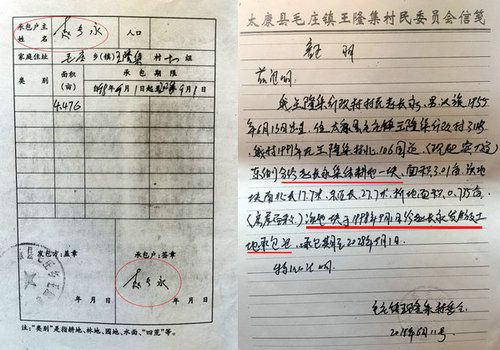 承包户主
姓名
赵长永
人口
家庭住址
毛庄乡(镇)王隆集村十一组
类别
面积
(亩)
承包期限
1998年9月1日起至 年9月1日
4.476
发包方:盖章
承包户:签章
赵长永
年 月 日
年 月 日
注:“类别”是指耕地、林地、园地、水面、“四荒”等。
太康县毛庄镇王隆集村民委员会信笺
证明
兹证明
王隆集行政村村民赵长永,男,汉族,1955
年6月15日出生,住太康县毛庄镇王隆集行政村
我村1991年在王隆集村北,106国道
东侧分给赵长永集体耕地一块,面积3.01亩,该地
块南北长17.7米,东西长27.7米,折地面积0.735亩,
该地块于1998年9月1日给赵长永发放了土
地承包证,承包期至2028年9月1日。
特此证明
毛庄镇王隆集村委会
2018年6月11号